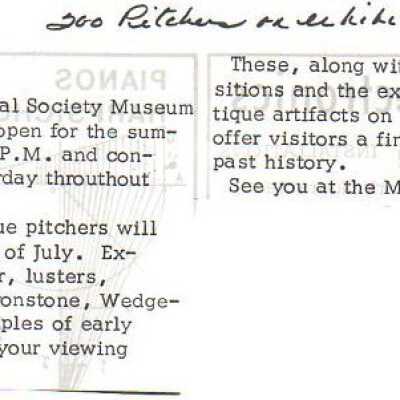 200 Pitchers on exhibi
al Society Museum
open for the sum-
P.M. and con-
rday throuthout
ue pitchers will
of July. Ex-
r, lusters,
ronstone, Wedge-
ples of early
your viewing
These, along wit
sitions and the ex
tique artifacts on
offer visitors a fin
past history.
See you at the M
PIANOS